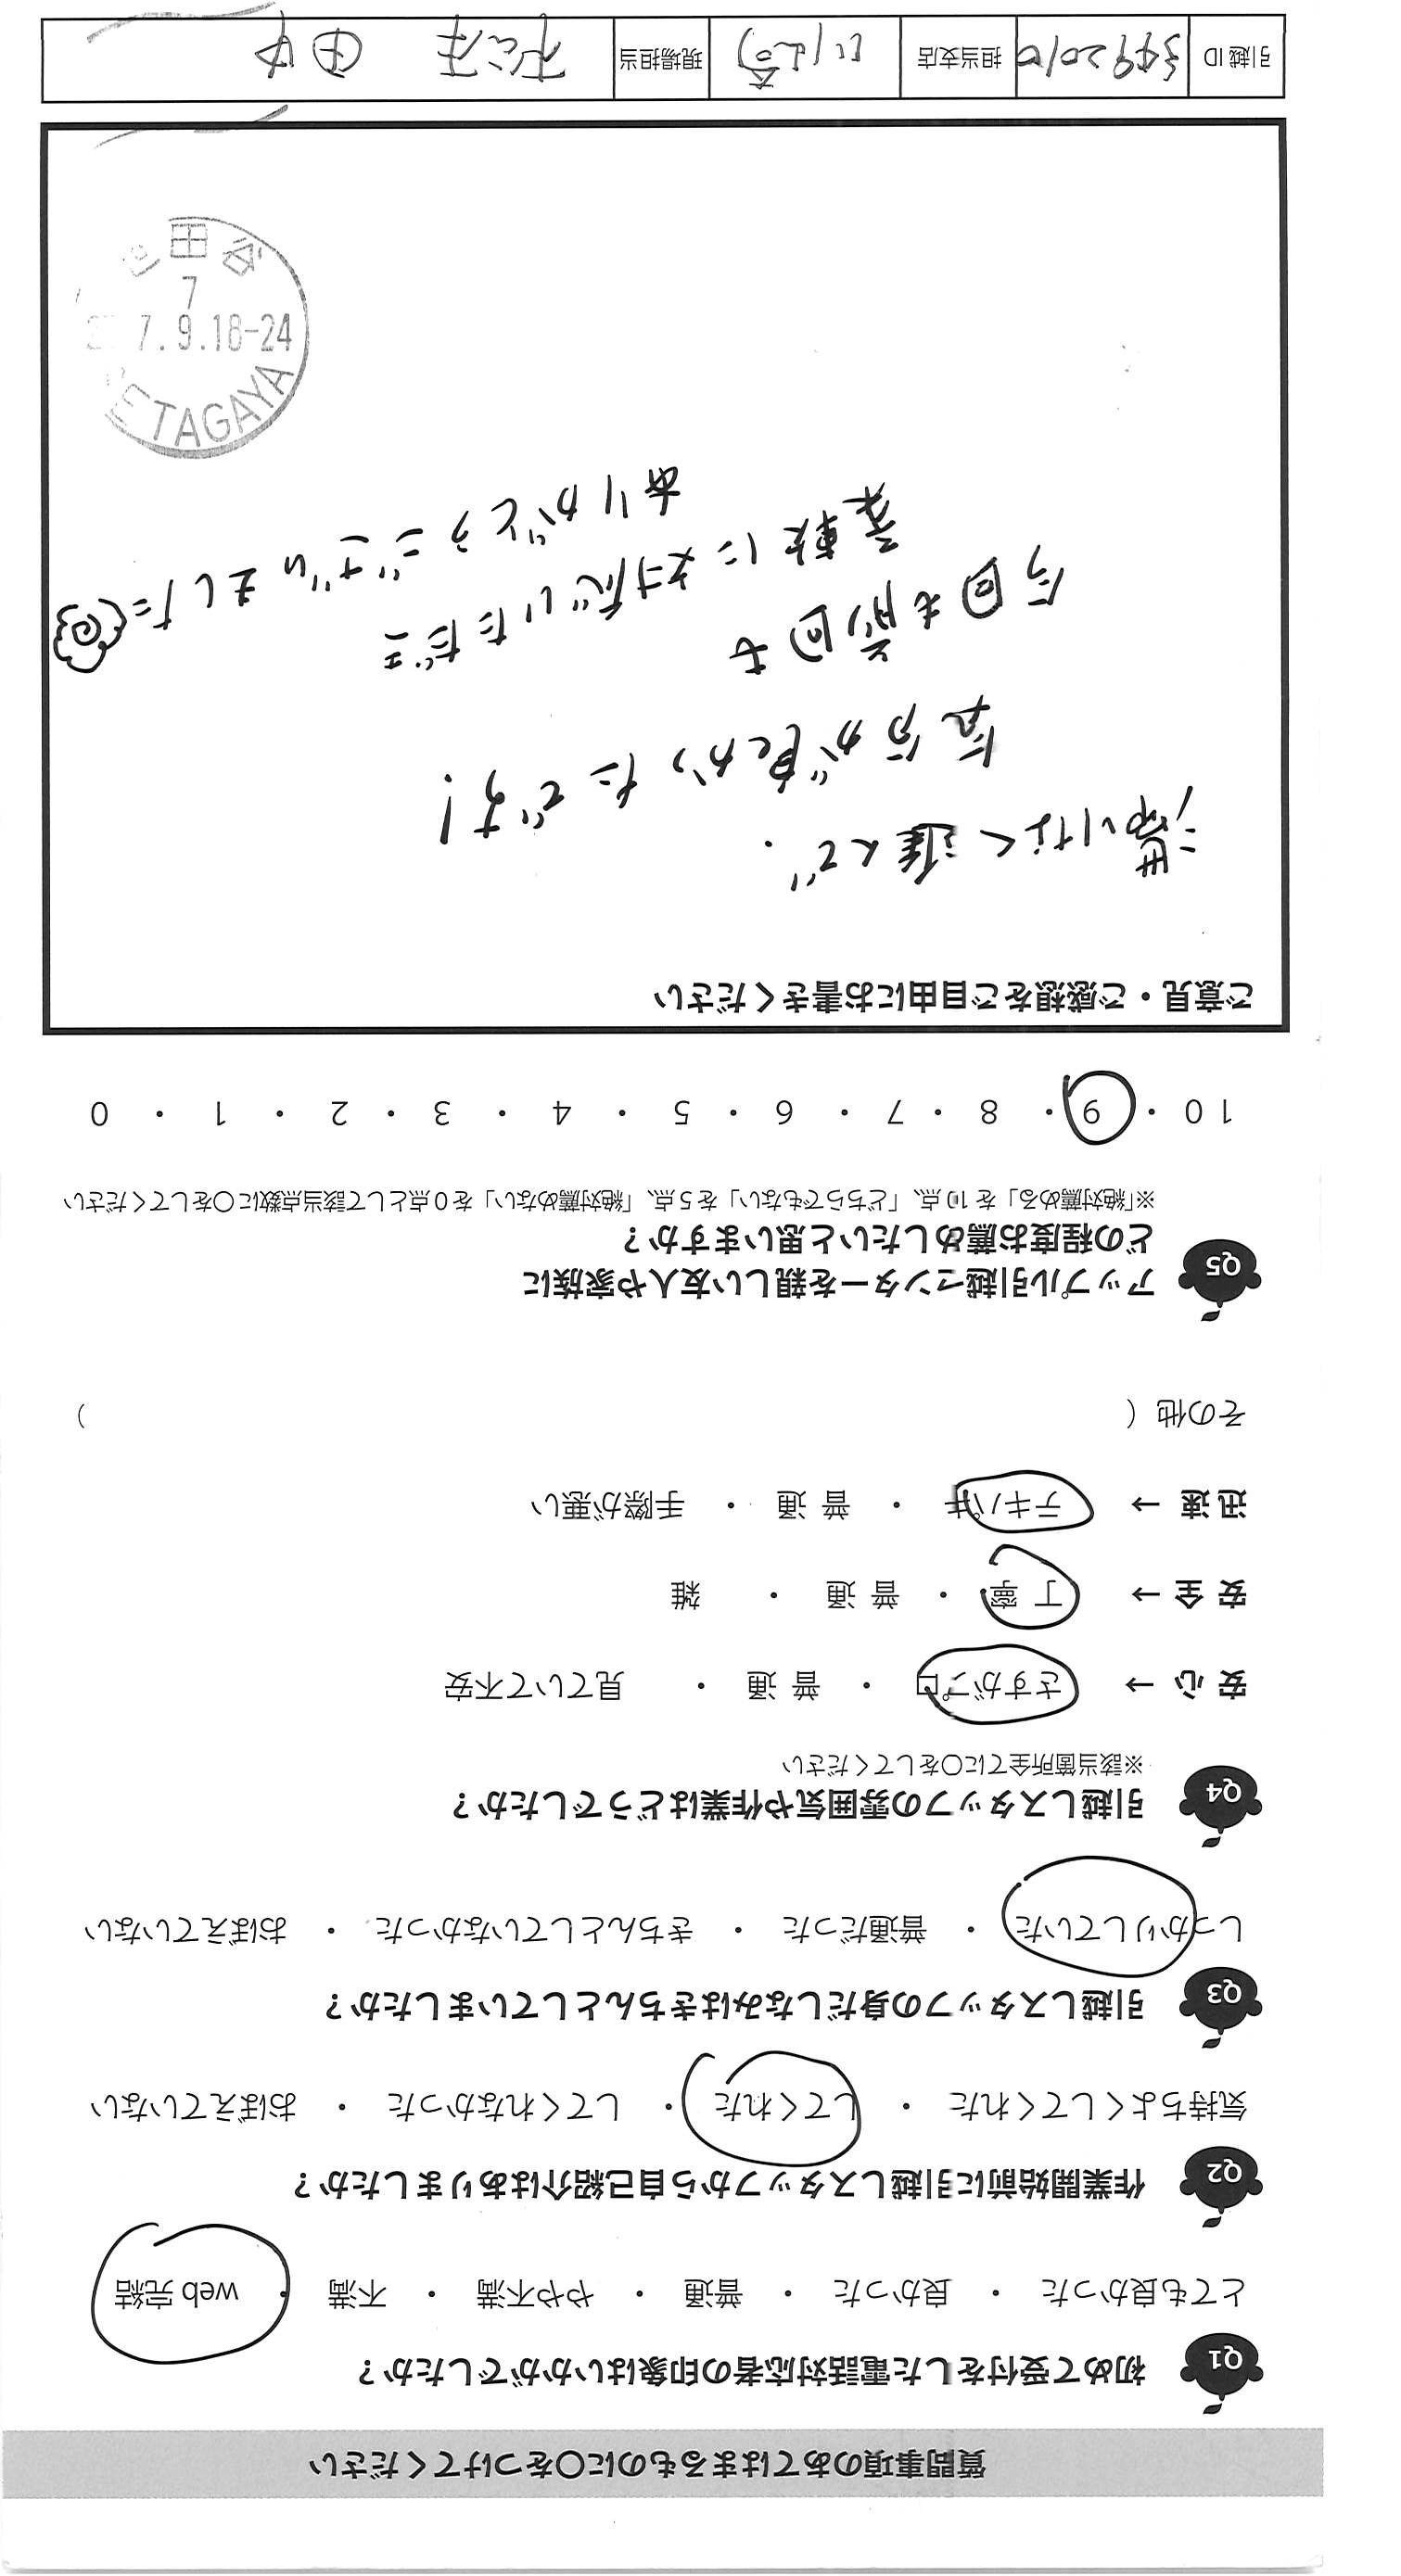 質問事項のあてはまるものに〇をつけてください
Q1 初めて受付をした電話対応者の印象はいかがでしたか？
とても良かった ・ 良かった ・ 普通 ・ やや不満 ・ 不満 ・ web 完結
Q2 作業開始前に引越しスタッフから自己紹介はありましたか？
気持ちよくしてくれた ・ してくれた ・ してくれなかった ・ おぼえていない
Q3 引越しスタッフの身だしなみはきちんとしていましたか？
しっかりしていた ・ 普通だった ・ きちんとしていなかった ・ おぼえていない
Q4 引越しスタッフの雰囲気や作業はどうでしたか？
※該当箇所全てに〇をしてください
安 心 → さすがプロ ・ 普 通 ・ 見ていて不安
安 全 → 丁 寧 ・ 普 通 ・ 雑
迅 速 → テキパキ ・ 普 通 ・ 手際が悪い
その他（ ）
Q5 アップル引越センターを親しい友人や家族に
どの程度お薦めしたいと思いますか？
※「絶対薦める」を 10 点、「どちらでもない」を 5 点、「絶対薦めない」を 0 点として該当点数に〇をしてください
10 ・ 9 ・ 8 ・ 7 ・ 6 ・ 5 ・ 4 ・ 3 ・ 2 ・ 1 ・ 0
ご意見・ご感想をご自由にお書きください
滞りなく進んで、
気分が良かったです！
今回も前回も
柔軟に対応いただき
ありがとうございました
ETAGAYA
7.9.18-24
7
田谷
引越 ID 担当支店 現場担当 田中